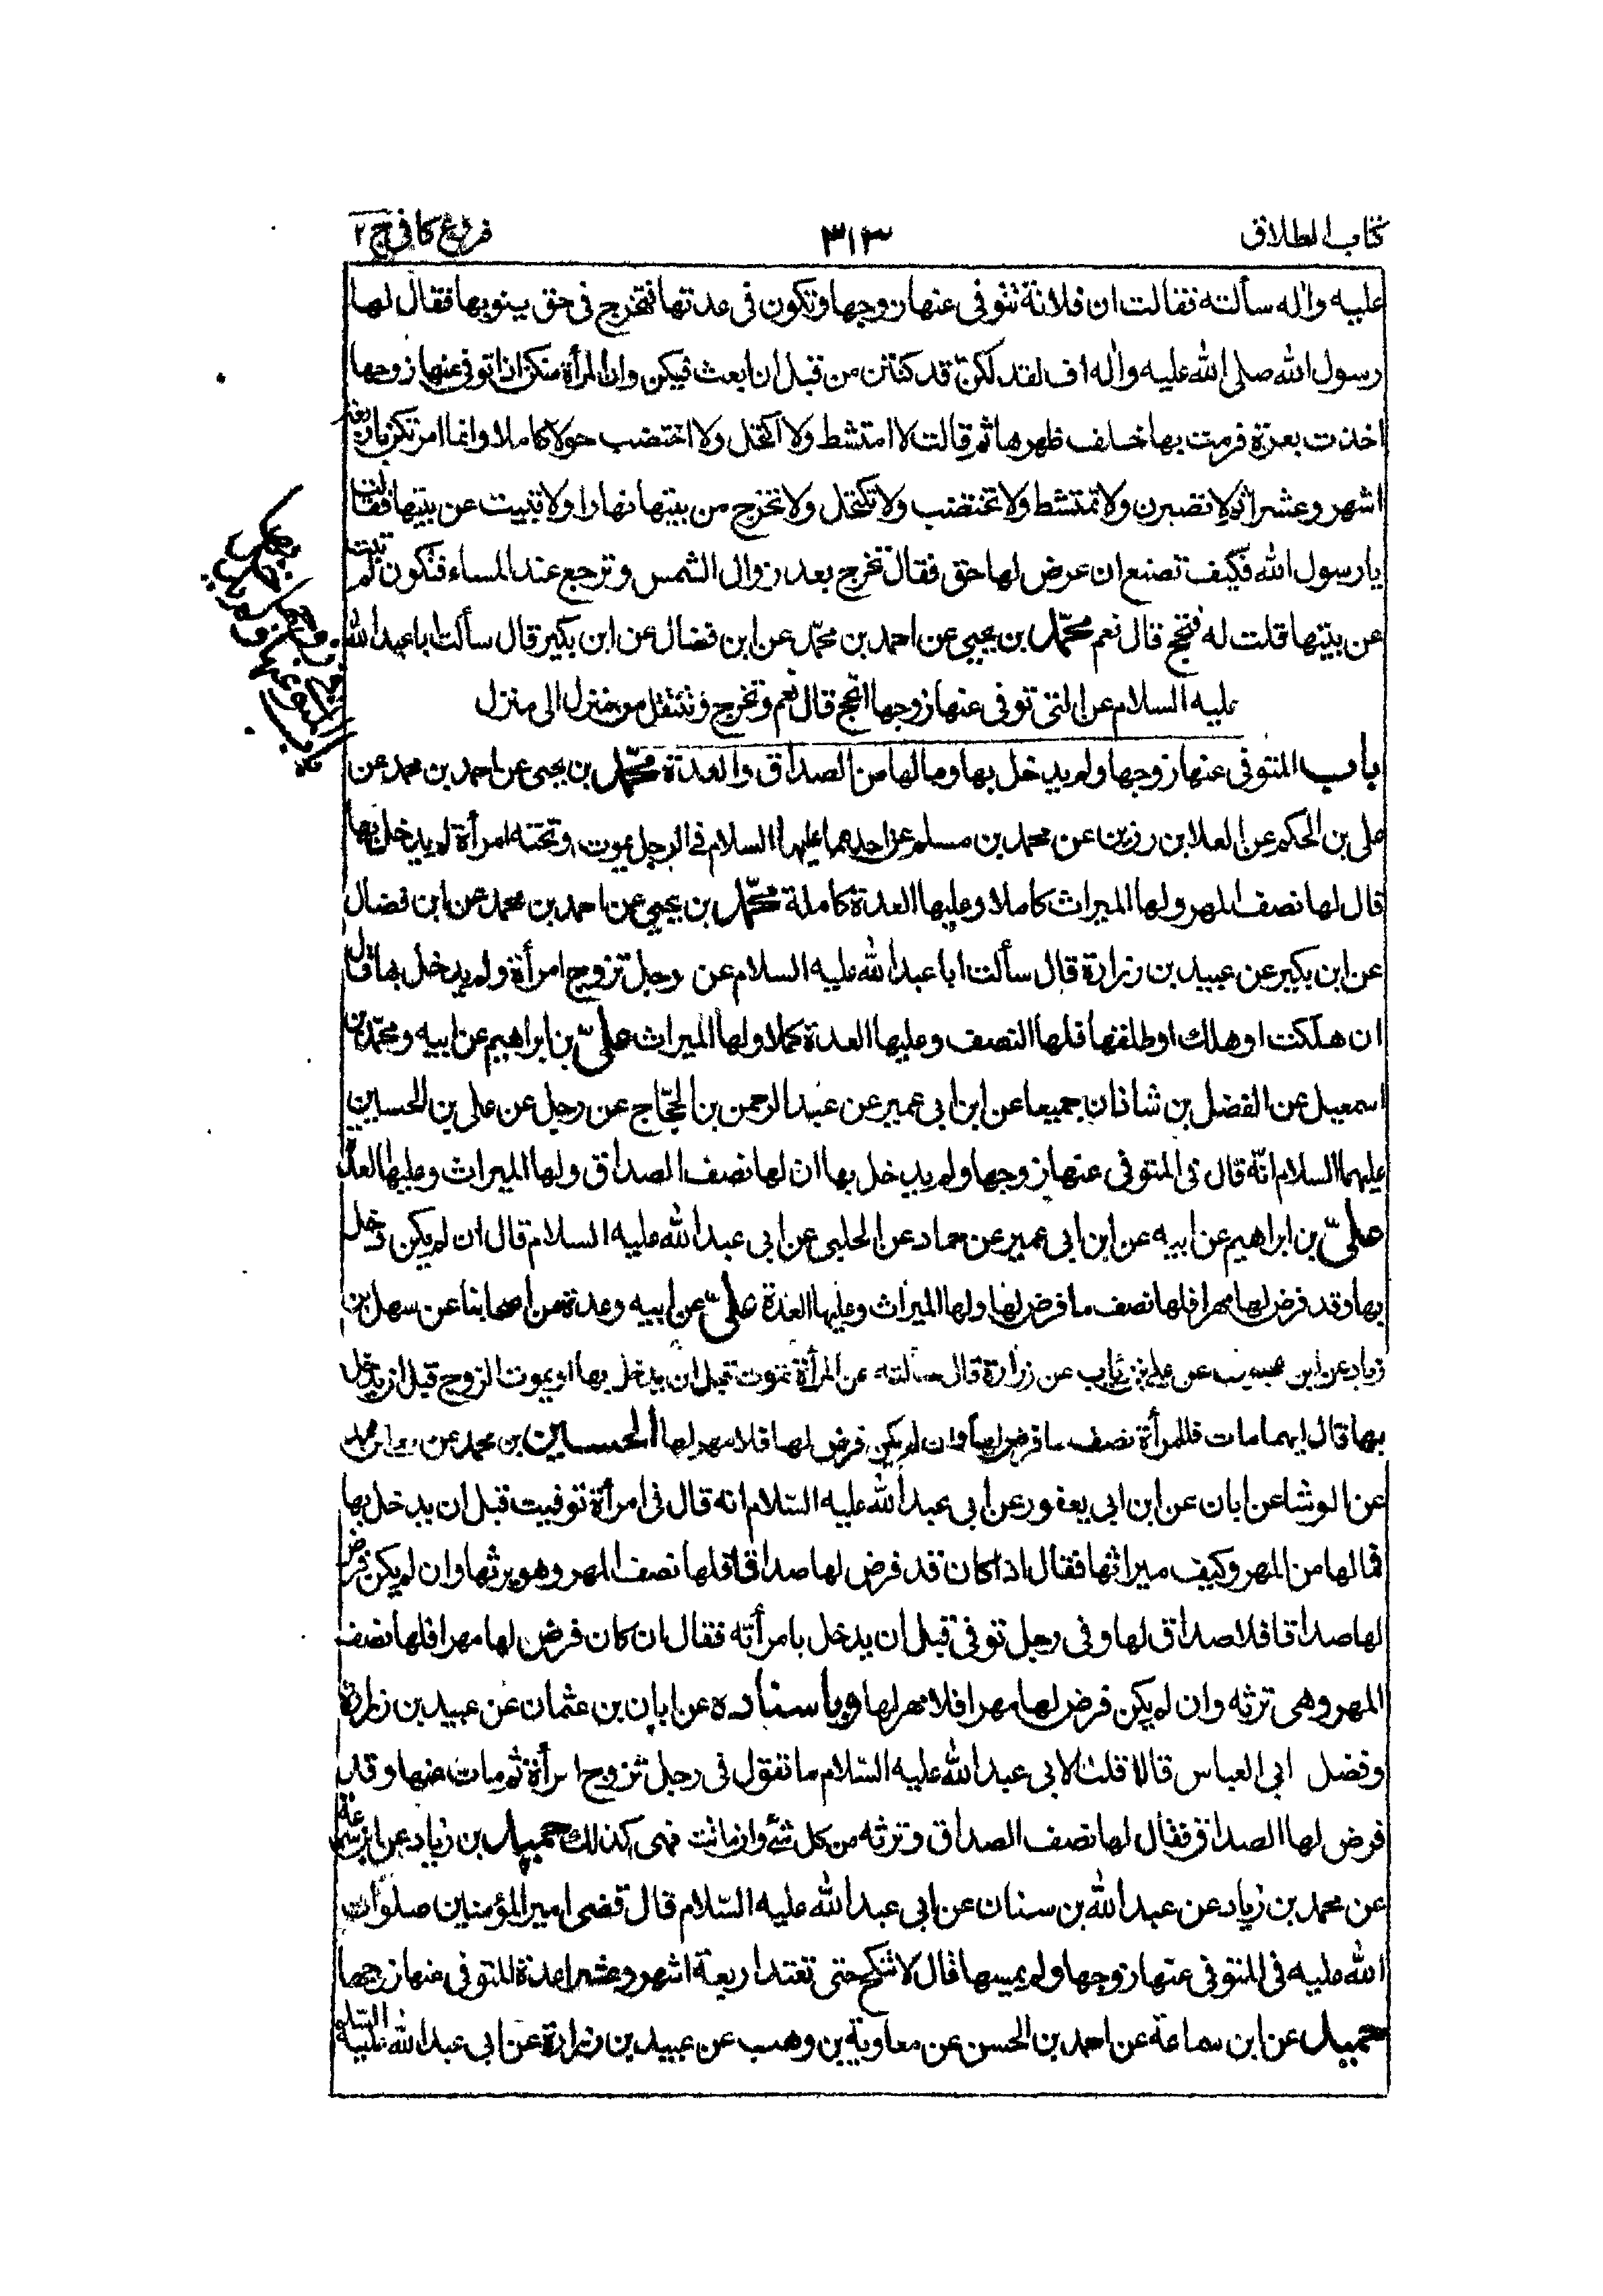 كتاب الطلاق
٣١٣
فروع كافي ج ٢
عليه واله سألته فقالت ان فلانة تتوفى عنها زوجها وتكون في عدتها فتخرج في حق ينوبها فقال لها
رسول الله صلى الله عليه واله اف لقد لكن قد كنتن من قبل ان ابعث فيكن وان المرأة منكن اذا توفى عنها زوجها
اخذت بعرة فرمت بها خلف ظهرها ثم قالت لا امتشط ولا اكتحل ولا اختضب حولا كاملا وانما امرتكن باربعة
اشهر وعشرا ثم لا تصبرن ولا تمتشط ولا تختضب ولا تكتحل ولا تخرج من بيتها نهارا ولا تبيت عن بيتها فقالت
يا رسول الله فكيف تصنع ان عرض لها حق فقال تخرج بعد زوال الشمس وترجع عند المساء فتكون لم تبت
عن بيتها قلت له فتحج قال نعم محمّد بن يحيى عن احمد بن محمّد عن ابن فضال عن ابن بكير قال سألت ابا عبد الله
عليه السلام عن التي توفى عنها زوجها اتحج قال نعم وتخرج وتنتقل من منزل الى منزل
باب المتوفى عنها زوجها ولم يدخل بها وما لها من الصداق والعدة محمّد بن يحيى عن احمد بن محمد عن
على بن الحكم عن العلا بن رزين عن محمد بن مسلم عن احدهما عليهما السلام في الرجل يموت وتحته امرأة لم يدخل بها
قال لها نصف المهر ولها الميراث كاملا وعليها العدة كاملة محمّد بن يحيى عن احمد بن محمد عن ابن فضال
عن ابن بكير عن عبيد بن زرارة قال سألت ابا عبد الله عليه السلام عن رجل تزوج امرأة ولم يدخل بها قال
ان هلكت او هلك او طلقها فلها النصف وعليها العدة كملا ولها الميراث علىّ بن ابراهيم عن ابيه ومحمّد بن
اسمعيل عن الفضل بن شاذان جميعا عن ابن ابي عمير عن عبد الرحمن بن الحجّاج عن رجل عن على بن الحسين
عليهما السلام انّه قال في المتوفى عنها زوجها ولم يدخل بها ان لها نصف الصداق ولها الميراث وعليها العدّة
علىّ بن ابراهيم عن ابيه عن ابن ابي عمير عن حماد عن الحلبي عن ابي عبد الله عليه السلام قال ان لم يكن دخل
بها وقد فرض لها مهرا فلها نصف ما فرض لها ولها الميراث وعليها العدة علىّ عن ابيه وعدة من اصحابنا عن سهل بن
زياد عن ابن محبوب عن على بن رئاب عن زرارة قال سالته عن المرأة تموت قبل ان يدخل بها او يموت الزوج قبل ان يدخل
بها قال ايهما مات فللمرأة نصف ما فرض لها وان لم يكن فرض لها فلا مهر لها الحسين بن محمد عن معلى بن محمد
عن الوشا عن ابان عن ابن ابي يعفور عن ابي عبد الله عليه السّلام انه قال في امرأة توفيت قبل ان يدخل بها
فما لها من المهر وكيف ميراثها فقال اذا كان قد فرض لها صداقا فلها نصف المهر وهو يرثها وان لم يكن فرض
لها صداقا فلا صداق لها وفي رجل توفى قبل ان يدخل بامرأته فقال ان كان فرض لها مهرا فلها نصف
المهر وهي ترثه وان لم يكن فرض لها مهرا فلا مهر لها وباسناده عن ابان بن عثمان عن عبيد بن زرارة
وفضل ابي العباس قالا قلنا لابي عبد الله عليه السّلام ما تقول في رجل تزوج امرأة ثم مات عنها وقد
فرض لها الصداق فقال لها نصف الصداق وترثه من كل شئ وان ماتت فهى كذلك حميد بن زياد عن ابن سماعة
عن محمد بن زياد عن عبد الله بن سنان عن ابي عبد الله عليه السّلام قال قضى امير المؤمنين صلوات
الله عليه في المتوفى عنها زوجها ولم يمسها قال لا تنكح حتى تعتد اربعة اشهر وعشرا عدة المتوفى عنها زوجها
حميد عن ابن سماعة عن احمد بن الحسن عن معاوية بن وهب عن عبيد بن زرارة عن ابي عبد الله عليه السّلام